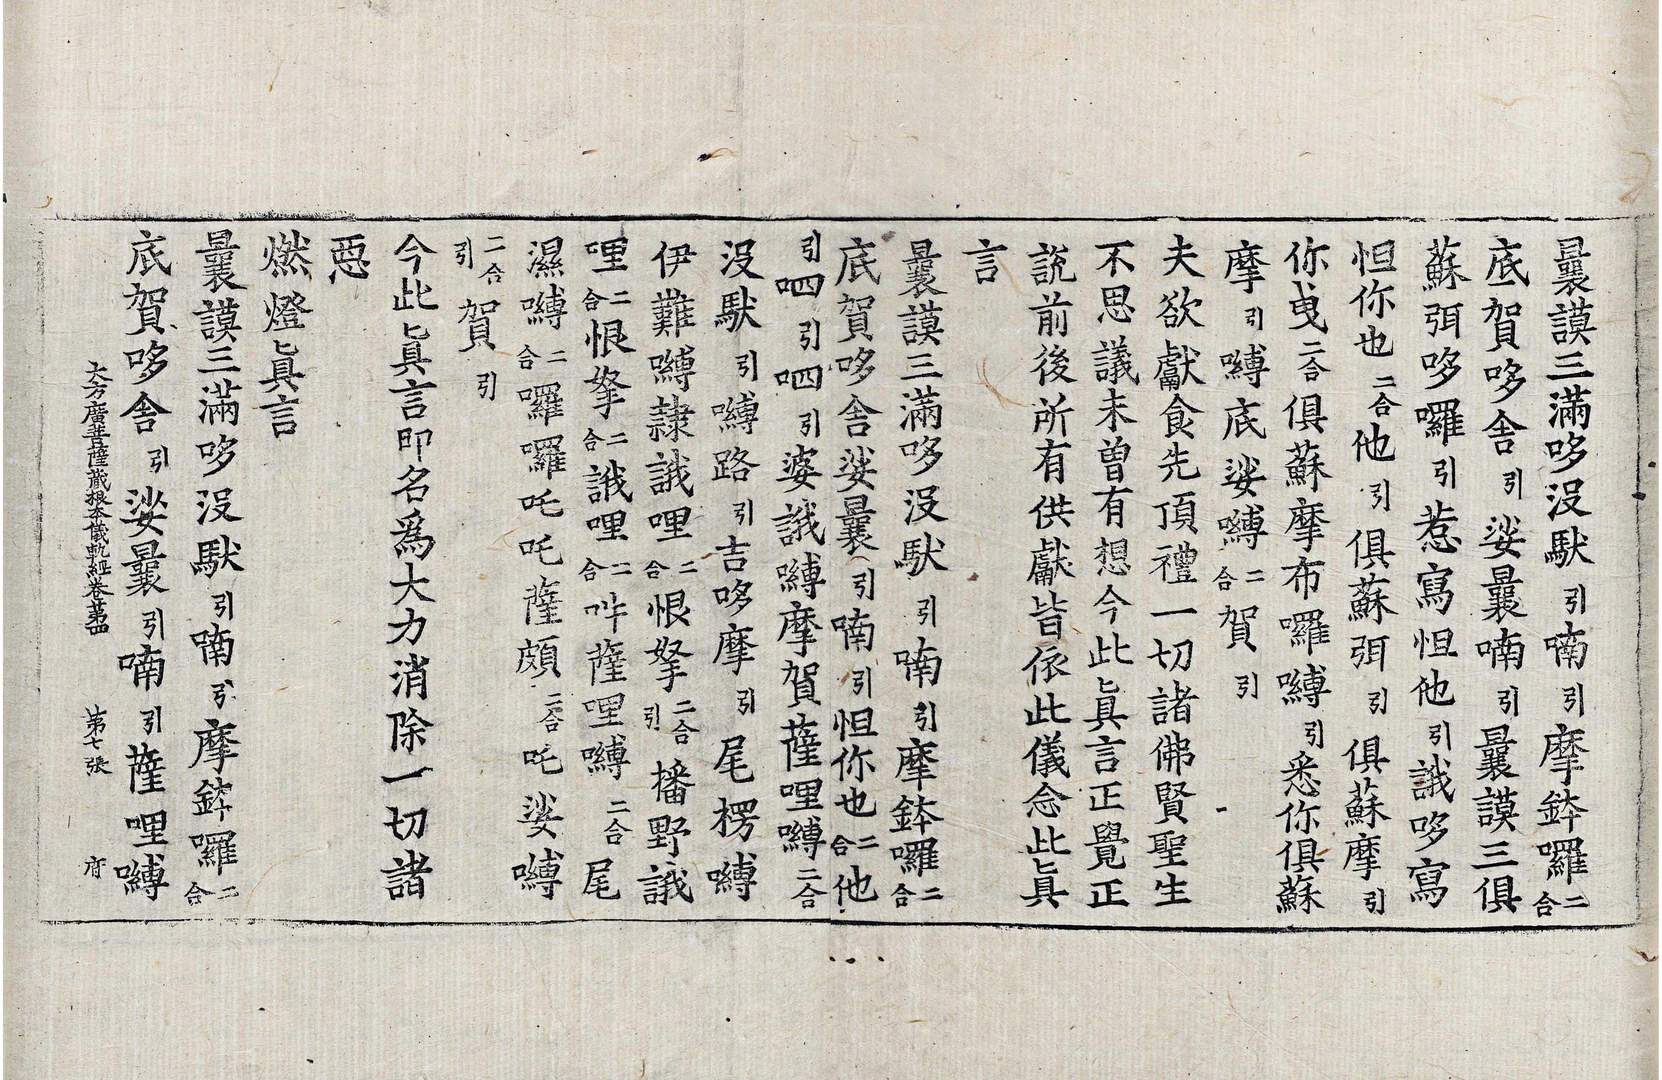 曩謨三滿哆沒馱引喃引摩鉢囉二合
底賀哆舍引娑曩喃引曩謨三俱
蘇弭哆囉引惹寫怛他引誐哆寫
怛你也二合他引俱蘇弭引俱蘇摩引
你曳二合俱蘇摩布囉嚩引悉你俱蘇
摩引嚩底娑嚩二合賀引
夫欲獻食先頂禮一切諸佛賢聖生
不思議未曾有想今此真言正覺正
說前後所有供獻皆依此儀念此真
言
曩謨三滿哆沒馱引喃引摩鉢囉二合
底賀哆舍娑曩引喃引怛你也二合他
引呬引引呬引婆誐嚩摩賀薩哩嚩二合
沒馱引嚩路引吉哆摩引尾楞嚩
伊難嚩隸誐哩二合恨拏二合引播野誐
哩二合恨拏二合誐哩二合吽薩哩嚩二合尾
濕嚩二合囉囉吒吒薩頗二合吒娑嚩
二合引賀引
今此真言即名爲大力消除一切諸
惡
燃燈真言
曩謨三滿哆沒馱引喃引摩鉢囉二合
底賀哆舍引娑曩引喃引薩哩嚩
大方廣菩薩藏根本儀軌經卷第四 第七張 府